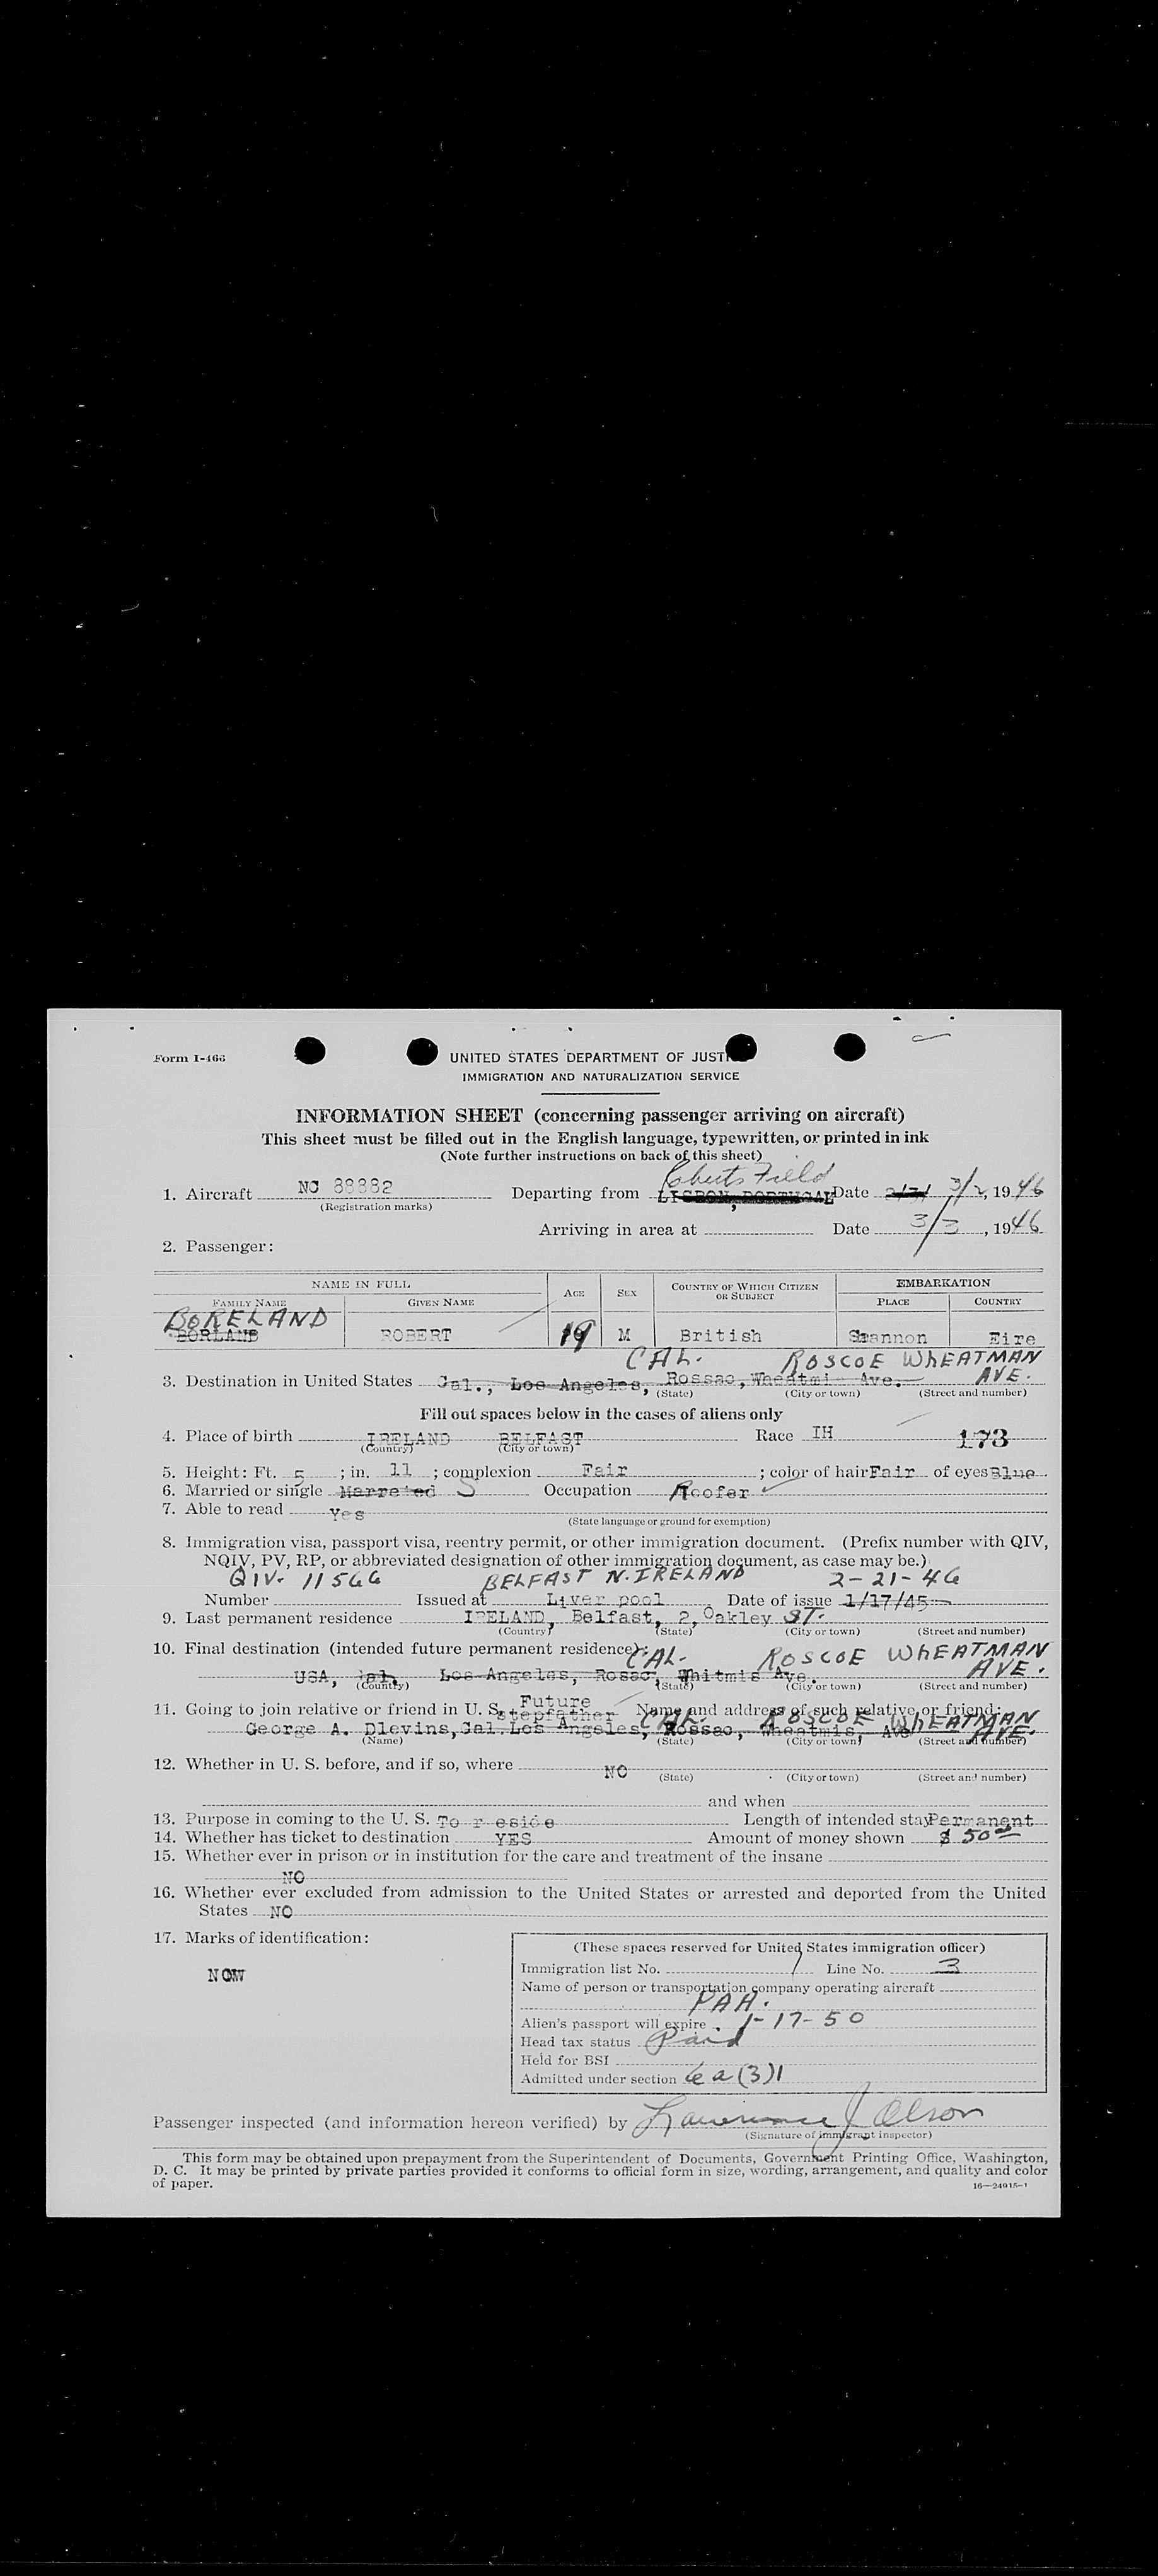 Form I-466
UNITED STATES DEPARTMENT OF JUST
IMMIGRATION AND NATURALIZATION SERVICE
INFORMATION SHEET (concerning passenger arriving on aircraft)
This sheet must be filled out in the English language, typewritten, or printed in ink
(Note further instructions on back of this sheet)
Roberts Field
1. Aircraft NC 88882 Departing from LISBON, PORTUGAL Date 3/2, 1946
(Registration marks)
Arriving in area at Date 3/3, 1946
2. Passenger:
NAME IN FULL AGE SEX COUNTRY OF WHICH CITIZEN OR SUBJECT EMBARKATION
FAMILY NAME GIVEN NAME PLACE COUNTRY
BORELAND
BORLAND ROBERT 19 M British Shannon Eire
CAL. ROSCOE WhEATMAN AVE.
3. Destination in United States Cal., Los Angeles, Rossao, Wheatmi Ave.
(State) (City or town) (Street and number)
Fill out spaces below in the cases of aliens only
4. Place of birth IRELAND BELFAST Race IH 173
(Country) (City or town)
5. Height: Ft. 5 ; in. 11 ; complexion Fair ; color of hair Fair of eyes Blue
6. Married or single S Occupation Roofer
7. Able to read Yes
(State language or ground for exemption)
8. Immigration visa, passport visa, reentry permit, or other immigration document. (Prefix number with QIV,
NQIV, PV, RP, or abbreviated designation of other immigration document, as case may be.)
QIV- 11566 BELFAST N. IRELAND 2-21-46
Number Issued at Liver pool Date of issue 1/17/45
9. Last permanent residence IRELAND, Belfast, 2, Oakley ST.
(Country) (State) (City or town) (Street and number)
10. Final destination (intended future permanent residence): CAL. ROSCOE WhEATMAN AVE.
USA, Cal, Los Angeles, Rossc, Whitmis Ave.
(Country) (State) (City or town) (Street and number)
11. Going to join relative or friend in U. S. Future stepfather Name and address of such relative or friend:
CAL. ROSCOE WhEATMAN AVE.
George A. Dlevins, Cal. Los Angeles, Rossao, Wheatmis, Ave
(Name) (State) (City or town) (Street and number)
12. Whether in U. S. before, and if so, where NO
(State) (City or town) (Street and number)
and when
13. Purpose in coming to the U. S. To r eside Length of intended stay Permanent
14. Whether has ticket to destination YES Amount of money shown $ 50
15. Whether ever in prison or in institution for the care and treatment of the insane
NO
16. Whether ever excluded from admission to the United States or arrested and deported from the United
States NO
17. Marks of identification:
(These spaces reserved for United States immigration officer)
Immigration list No. 1 Line No. 3
Name of person or transportation company operating aircraft
PAA.
Alien's passport will expire 1-17-50
Head tax status Paid
Held for BSI
Admitted under section 6a(3)1
Passenger inspected (and information hereon verified) by Lawrence J Olson
(Signature of immigrant inspector)
This form may be obtained upon prepayment from the Superintendent of Documents, Government Printing Office, Washington,
D. C. It may be printed by private parties provided it conforms to official form in size, wording, arrangement, and quality and color
of paper.
16—24915-1